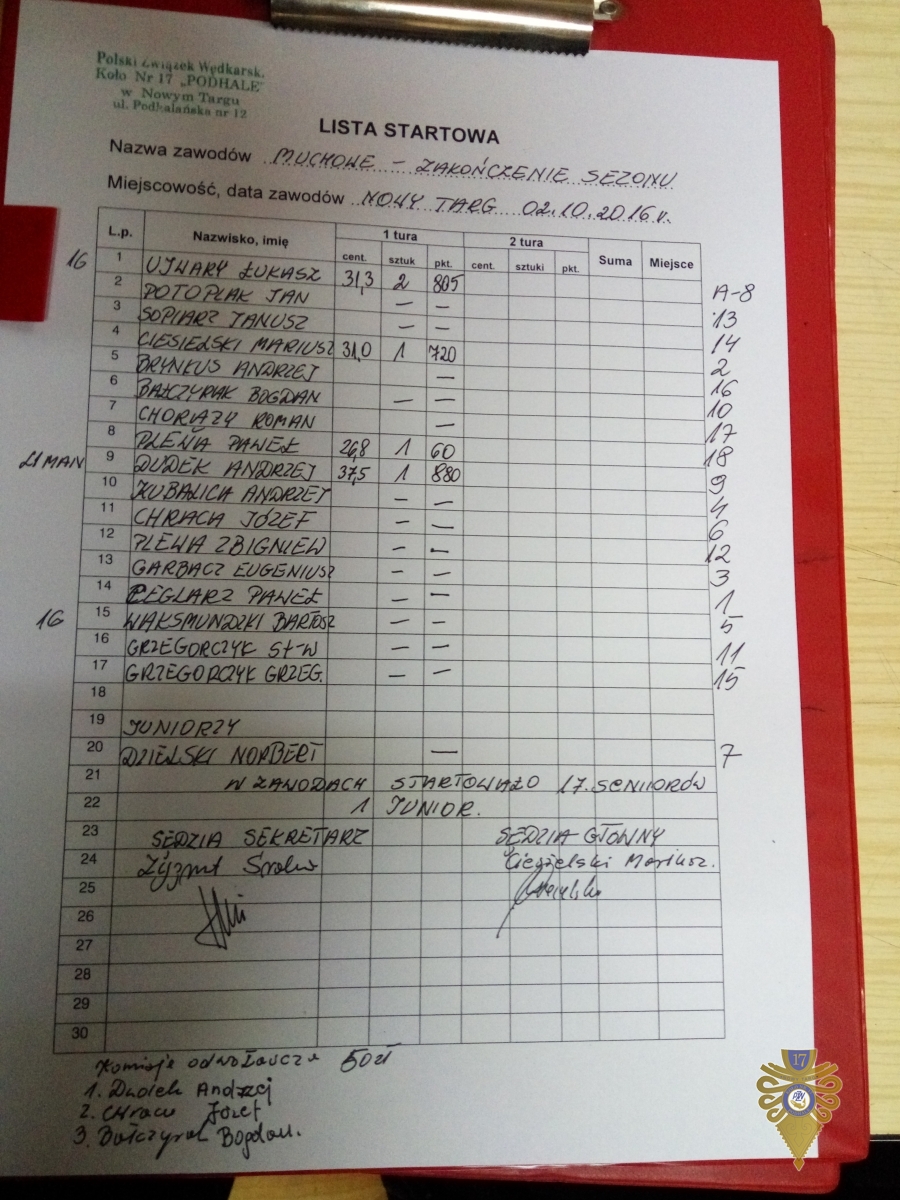 Polski Związek Wędkarsk.
Koło Nr 17 „PODHALE"
w Nowym Targu
ul. Podhalańska nr 12
LISTA STARTOWA
Nazwa zawodów MUCHOWE – ZAKOŃCZENIE SEZONU
Miejscowość, data zawodów NOWY TARG 02.10.2016 r.
L.p. Nazwisko, imię 1 tura 2 tura Suma Miejsce
cent. sztuk pkt. cent. sztuki pkt.
16 1 UJWARY ŁUKASZ 31,3 2 805 A-8
2 POTOPLAK JAN — — 13
3 SOPIARZ JANUSZ — — 14
4 CIESIELSKI MARIUSZ 31,0 1 720 2
5 BRYNKUS ANDRZEJ — 16
6 BAŁCZYRAK BOGDAN — — 10
7 CHORĄŻY ROMAN — 17
8 PLEWA PAWEŁ 26,8 1 60 18
LIMAN 9 DUDEK ANDRZEJ 37,5 1 880 9
10 KUBALICA ANDRZEJ — — 4
11 CHRACA JÓZEF — — 6
12 PLEWA ZBIGNIEW — — 12
13 GARBACZ EUGENIUSZ — — 3
14 CEGLARZ PAWEŁ — — 1
16 15 WAKSMUNDZKI BARTOSZ — — 5
16 GRZEGORCZYK ST-W — — 11
17 GRZEGORCZYK GRZEG. — — 15
18
19 JUNIORZY
20 DZIELSKI NORBERT — 7
21 W ZAWODACH STARTOWAŁO 17. SENIORÓW
22 1 JUNIOR.
23 SĘDZIA SEKRETARZ SĘDZIA GŁÓWNY
24 Zygmunt Ciesielski Mariusz.
25
26
27
28
29
30
Komisja odwoławcza 50zł
1. Dudek Andrzej
2. Chraca Józef
3. Bałczyrak Bogdan.
17
PZW